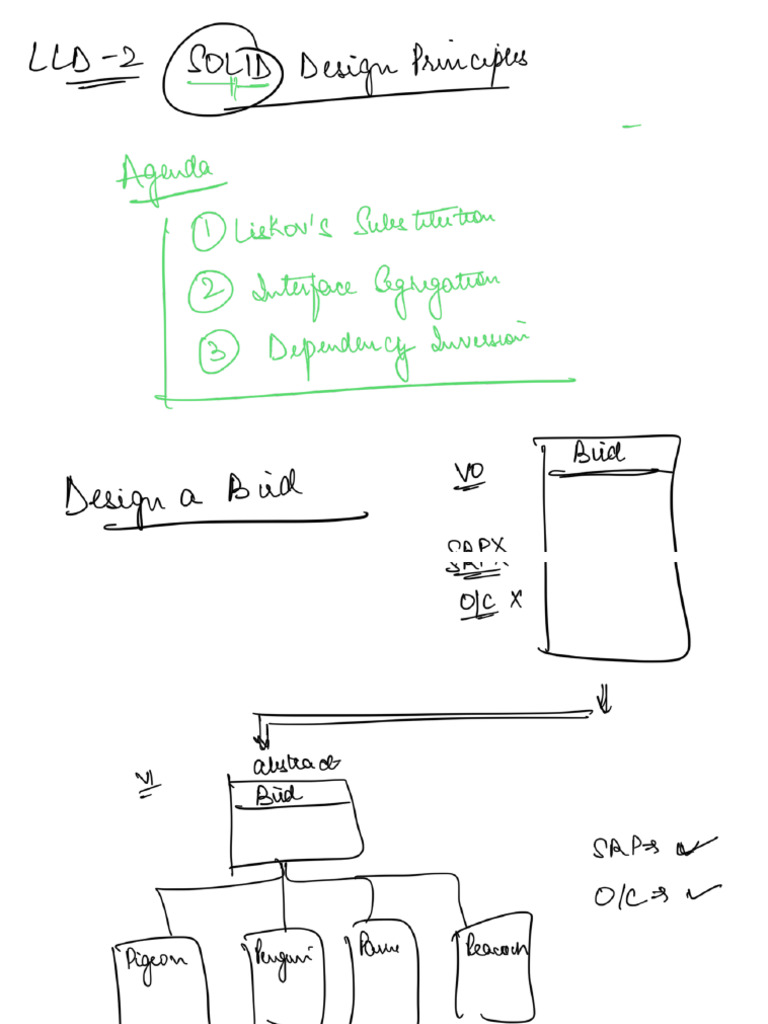 LLD-2 SOLID Design Principles
Agenda
① Liskov's Substitution
② Interface Segregation
③ Dependency Inversion
Design a Bird
V0
Bird
SRP X
O/C X
V1
abstract
Bird
SRP ⇒ ✓
O/C ⇒ ✓
Pigeon Penguin Peacock